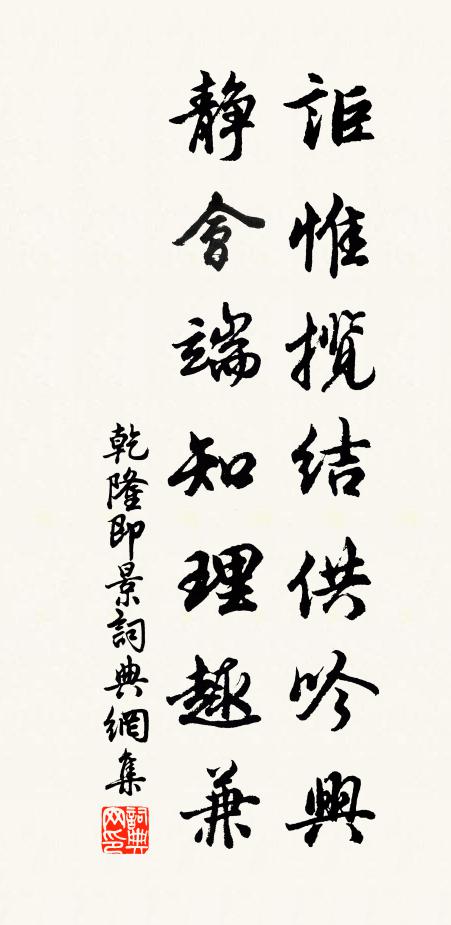 詎惟攬結供吟興
静會端知理趣兼
乾隆即景詞典網集
詞典网印